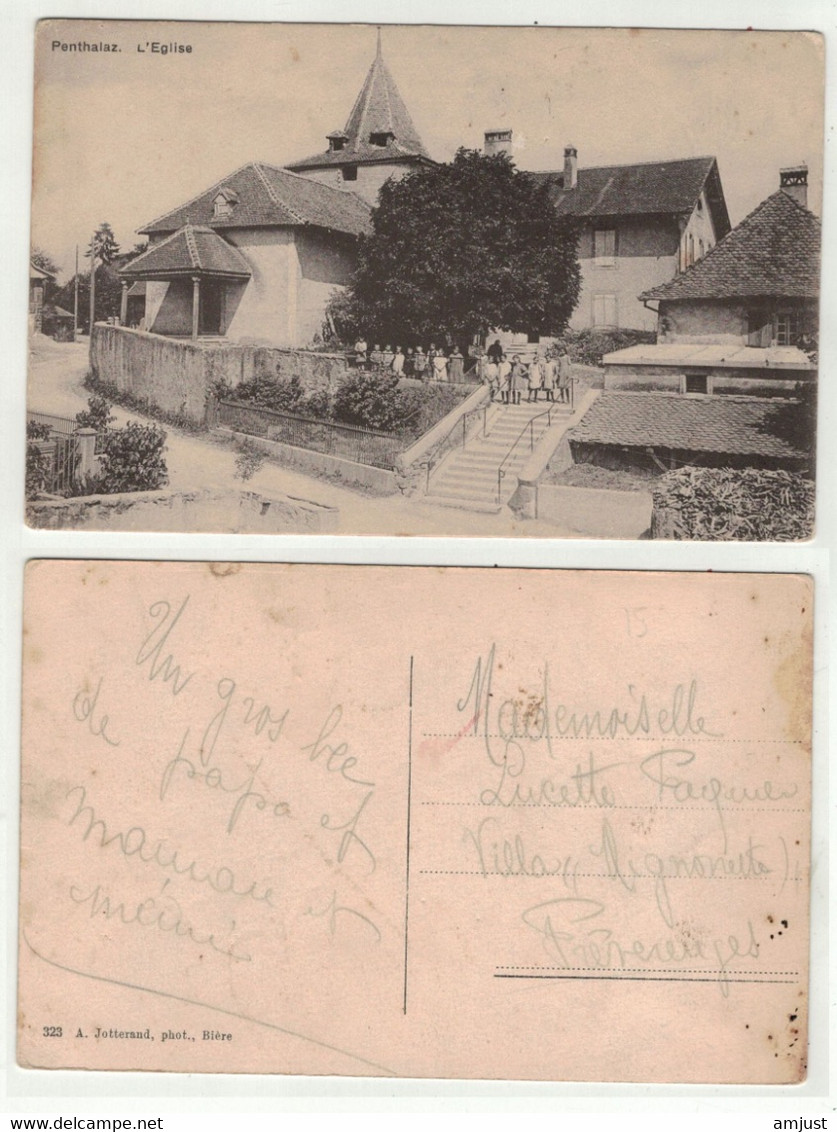 Penthalaz. L'Eglise
15
Un gros bec
de papa et
Maman et
mémé
Mademoiselle
Lucette Paquier
Villa « Mignonette »
Préverenges
323 A. Jotterand, phot., Bière
amjust
Delcampe.net